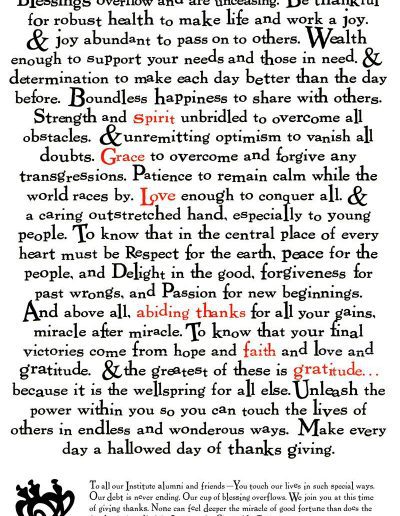 Blessings overflow and are unceasing. Be thankful
for robust health to make life and work a joy.
& joy abundant to pass on to others. Wealth
enough to support your needs and those in need. &
determination to make each day better than the day
before. Boundless happiness to share with others.
Strength and Spirit unbridled to overcome all
obstacles. & unremitting optimism to vanish all
doubts. Grace to overcome and forgive any
transgressions. Patience to remain calm while the
world races by. Love enough to conquer all. &
a caring outstretched hand, especially to young
people. To know that in the central place of every
heart must be Respect for the earth, peace for the
people, and Delight in the good, forgiveness for
past wrongs, and Passion for new beginnings.
And above all, abiding thanks for all your gains,
miracle after miracle. To know that your final
victories come from hope and faith and love and
gratitude. & the greatest of these is gratitude...
because it is the wellspring for all else. Unleash the
power within you so you can touch the lives of
others in endless and wonderous ways. Make every
day a hallowed day of thanks giving.
To all our Institute alumni and friends—You touch our lives in such special ways.
Our debt is never ending. Our cup of blessing overflows. We join you at this time
of giving thanks. None can feel deeper the miracle of good fortune than does the